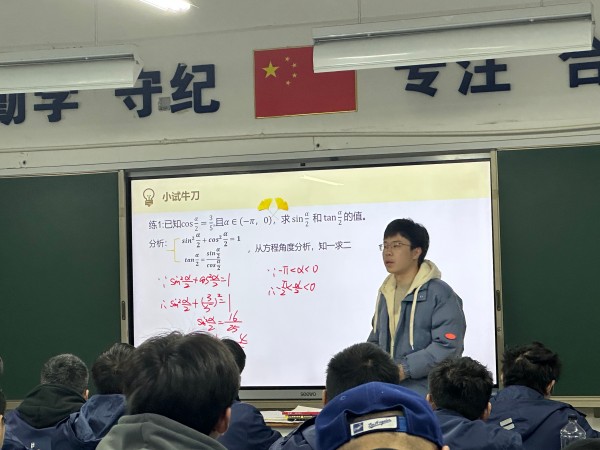 勤学 守纪
专注 合
小试牛刀
练1:已知cos α/2 = 3/5,且α∈(−π, 0), 求 sin α/2 和 tan α/2 的值。
分析: sin² α/2 + cos² α/2 = 1
tan α/2 = sin α/2 / cos α/2
, 从方程角度分析, 知一求二
∵ sin² α/2 + cos² α/2 = 1
∴ sin² α/2 + (3/5)² = 1
sin² α/2 = 16/25
∵ -π<α<0
∴ -π/2<α/2<0
seewo